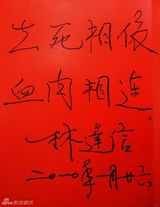 生死相依
血肉相连
林
二〇一〇年一月廿六
新浪娱乐